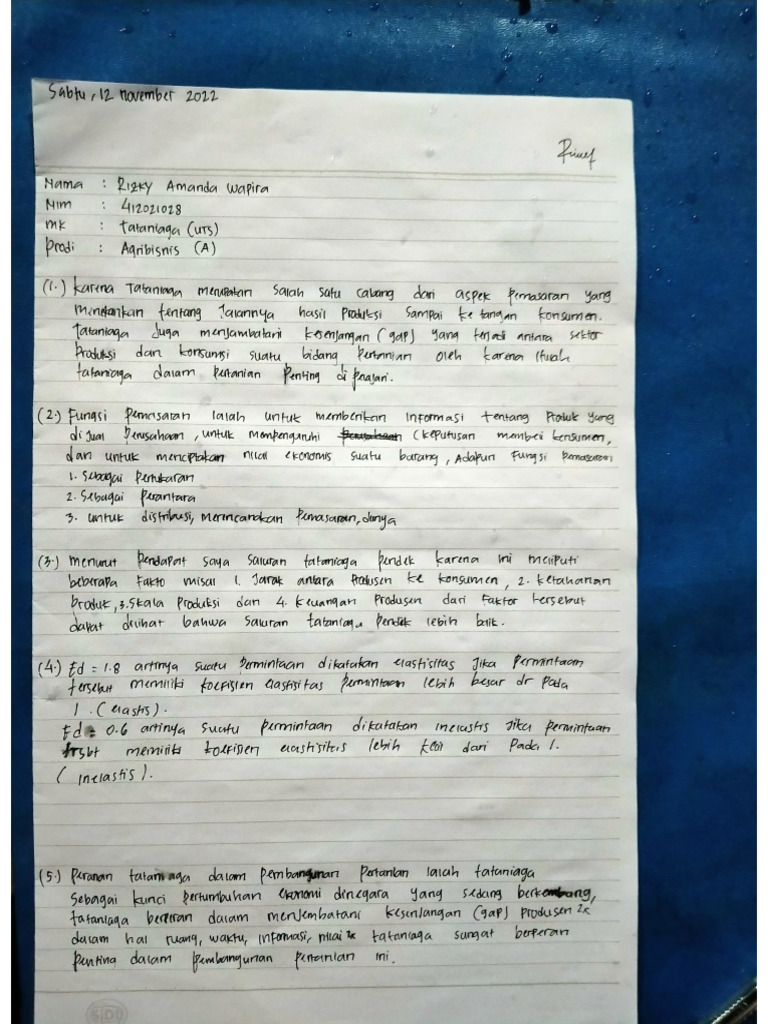 Sabtu, 12 november 2022
Nama : Rizky Amanda Wapira
Nim : 412021028
mk : tataniaga (uts)
Prodi : Agribisnis (A)
(1.) karena Tataniaga merupakan Salah satu cabang dari aspek pemasaran yang
menekankan tentang Jalannya hasil produksi Sampai ke tangan konsumen.
Tataniaga Juga menjambatani kesenjangan (gap) yang terjadi antara sektor
produksi dan konsumsi suatu bidang pertanian oleh karena itulah
tataniaga dalam pertanian Penting di pelajari.
(2.) Fungsi pemasaran ialah untuk memberikan informasi tentang produk yang
di jual perusahaan, untuk mempengaruhi (keputusan membeli konsumen,
dan untuk menciptakan nilai ekonomis suatu barang, Adapun fungsi pemasaran
1. Sebagai pertukaran
2. Sebagai perantara
3. untuk distribusi, merencanakan pemasaran, danya
(3.) menurut pendapat saya saluran tataniaga pendek karena ini meliputi
beberapa fakto misal 1. Jarak antara produsen ke konsumen, 2. ketahanan
produk, 3. Skala produksi dan 4. keuangan produsen dari faktor tersebut
dapat dilihat bahwa saluran tataniaga pendek lebih baik.
(4.) Ed = 1.8 artinya suatu permintaan dikatakan elastisitas Jika permintaan
tersebut memiliki koefisien elastisitas permintaan lebih besar dr pada
1 . (elastis).
Ed = 0.6 artinya suatu permintaan dikatakan inelastis Jika permintaan
trsbt memiliki koefisien elastisitas lebih kecil dari pada 1.
(inelastis).
(5.) peranan tataniaga dalam pembangunan pertanian ialah tataniaga
sebagai kunci pertumbuhan ekonomi dinegara yang sedang berkembang,
tataniaga berperan dalam menjembatani kesenjangan (gap) produsen 2x
dalam hal ruang, waktu, informasi, nilai 2x tataniaga sangat berperan
penting dalam pembangunan pertanian ini.
SIDU